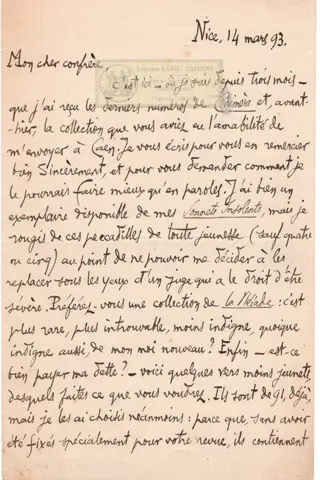 Nice, 14 mars 93.
Mon cher confrère
c'est ici – où je suis depuis trois mois –
que j'ai reçu les derniers numéros de Chimère et, avant-
-hier, la collection que vous aviez eu l'amabilité de
m'envoyer à Caen. Je vous écris pour vous en remercier
bien sincèrement, et pour vous demander comment je
le pourrais faire mieux qu'en paroles. J'ai bien un
exemplaire disponible de mes Sonnets Insolents, mais je
rougis de ces peccadilles de toute jeunesse (sauf quatre
ou cinq) au point de ne pouvoir me décider à les
replacer sous les yeux d'un juge qui a le droit d'être
sévère. Préférez-vous une collection de la Pléiade : c'est
plus rare, plus introuvable, moins indigne, quoique
indigne aussi, de mon moi nouveau? Enfin – est-ce
bien payer ma dette? – voici quelques vers moins jeunets,
desquels faites ce que vous voudrez. Ils sont de 91, déjà,
mais je les ai choisis néanmoins : parce que, sans avoir
été fixés spécialement pour votre revue, ils contiennent